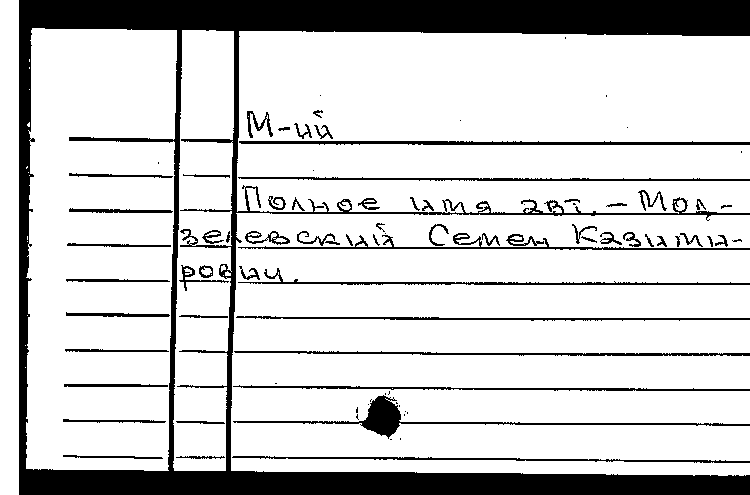 М-ий
Полное имя авт. - Мод-
зелевский Семен Казими-
рович.